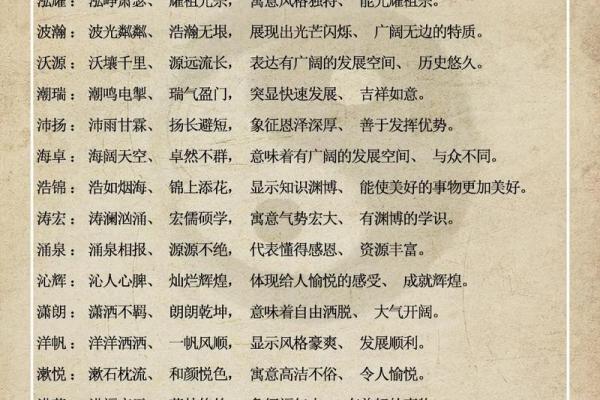 泓耀：泓峥萧瑟、耀祖光宗，寓意风格独特、能光耀祖宗。
波瀚：波光粼粼、浩瀚无垠，展现出光芒闪烁、广阔无边的特质。
沃源：沃壤千里、源远流长，表达有广阔的发展空间、历史悠久。
潮瑞：潮鸣电掣、瑞气盈门，突显快速发展、吉祥如意。
沛扬：沛雨甘霖、扬长避短，象征恩泽深厚、善于发挥优势。
海卓：海阔天空、卓然不群，意味着有广阔的发展空间、与众不同。
浩锦：浩如烟海、锦上添花，显示知识渊博、能使美好的事物更加美好。
涛宏：涛澜汹涌、宏儒硕学，寓意气势宏大、有渊博的学识。
涌泉：涌泉相报、源源不绝，代表懂得感恩、资源丰富。
沁辉：沁人心脾、灿烂辉煌，体现给人愉悦的感受、成就辉煌。
潇朗：潇洒不羁、朗朗乾坤，意味着自由洒脱、大气开阔。
洋帆：洋洋洒洒、一帆风顺，显示风格豪爽、发展顺利。
漱悦：漱石枕流、和颜悦色，寓意高洁不俗、令人愉悦。